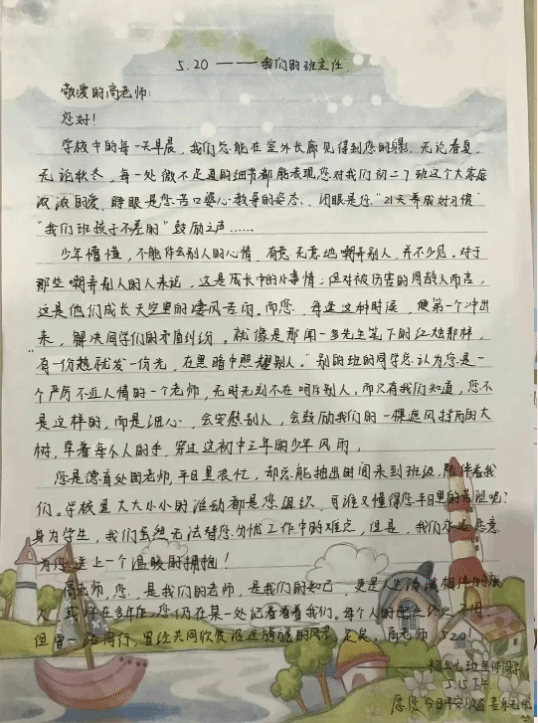 5.20 ——我们的班主任
敬爱的高老师:
您好!
学校中的每一天早晨,我们总能在室外长廊见得到您的身影,无论春夏,
无论秋冬,每一处微不足道的细节都能表现您对我们初二7班这个大家庭
浓浓的爱,睁眼是您苦口婆心教导的姿态,闭眼是您“21天养成好习惯”
“我们班孩子不差的”鼓励之声……
少年懵懂,不能体会别人的心情,有意无意地嘲弄别人,并不少见。对于
那些嘲弄别人的人来说,这是成长中的小事情;但对被伤害的同龄人而言,
这是他们成长天空里的凄风苦雨。而您,每逢这种时候,便第一个冲出
来,解决同学们的矛盾纠纷。就像是那闻一多先生笔下的红烛那样,
“有一份热就发一份光,在黑暗中照耀别人。”别的班的同学总认为您是一
个严厉不近人情的一个老师,无时无刻不在呵斥别人,而只有我们知道,您不
是这样的,而是细心,会安慰别人,会鼓励我们的一棵遮风挡雨的大
树,牵着每个人的手,穿过这初中三年的少年风雨,
您是德育处的老师,平日里很忙,却总能抽出时间来到班级,陪伴着我
们。学校里大大小小的活动都是您组织,可谁又懂得您平日里的苦呢?
身为学生,我们虽然无法替您分忧工作中的难点,但是,我们永远愿意
为您送上一个温暖的拥抱!
高老师,您,是我们的老师,是我们的知己,更是人生
或许在多年后,您仍在某一处记着看着我们。每个人的
但曾一路同行,曾经共同欣赏 的风景 足矣,高老师,520!
7班全体同学
5.15
愿您今日平安 喜乐无忧